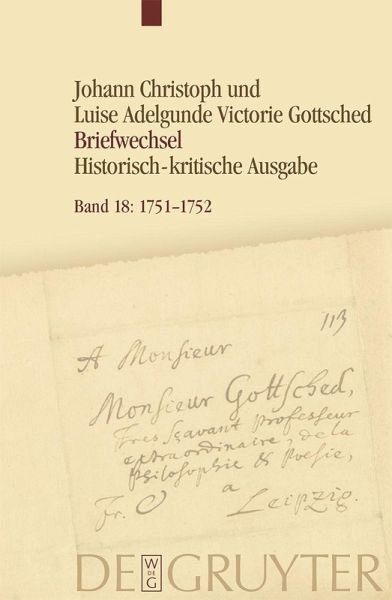 Johann Christoph und
Luise Adelgunde Victorie Gottsched
Briefwechsel
Historisch-kritische Ausgabe
Band 18: 1751–1752
113
A Monsieur
Monsieur Gottsched,
Tres Sçavant Professeur
extraordinaire, de la
Philosophie & Poesie,
Fr. a
Leipzig.
DE GRUYTER
W
DE
G